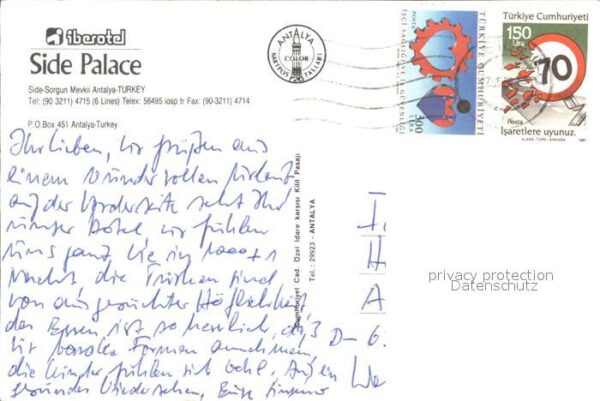 iberotel
Side Palace
Side-Sorgun Mevkii Antalya-TURKEY
Tel: (90 3211) 4715 (6 Lines) Telex: 56495 iosp tr Fax: (90 3211) 4714
P.O.Box 451 Antalya-Turkey
ANTALYA
COLOR
KARTPOSTALLARI
Cumhuriyet Cad. Özel İdare karşısı Kilit Pasajı
Tel.: 29923 - ANTALYA
TÜRKİYE CUMHURİYETİ
POSTA
İŞÇİ SAĞLIĞI VE İŞ GÜVENLİĞİ
300
LİRA
Türkiye Cumhuriyeti
150
Lira
70
Posta
İşaretlere uyunuz.
Ihr Lieben, wir grüßen aus
einem wundervollen Urlaub
auf der Vorderseite seht Ihr
unser Hotel wir fühlen
uns ganz wie in 1000 + 1
Nacht, die Türken sind
von ausgesuchter Höflichkeit
das Essen ist so herrlich, daß
wir barocke Formen annehmen,
die Kinder fühlen sich wohl. Auf ein
gesundes Wiedersehen, Eure
D-6
privacy protection
Datenschutz